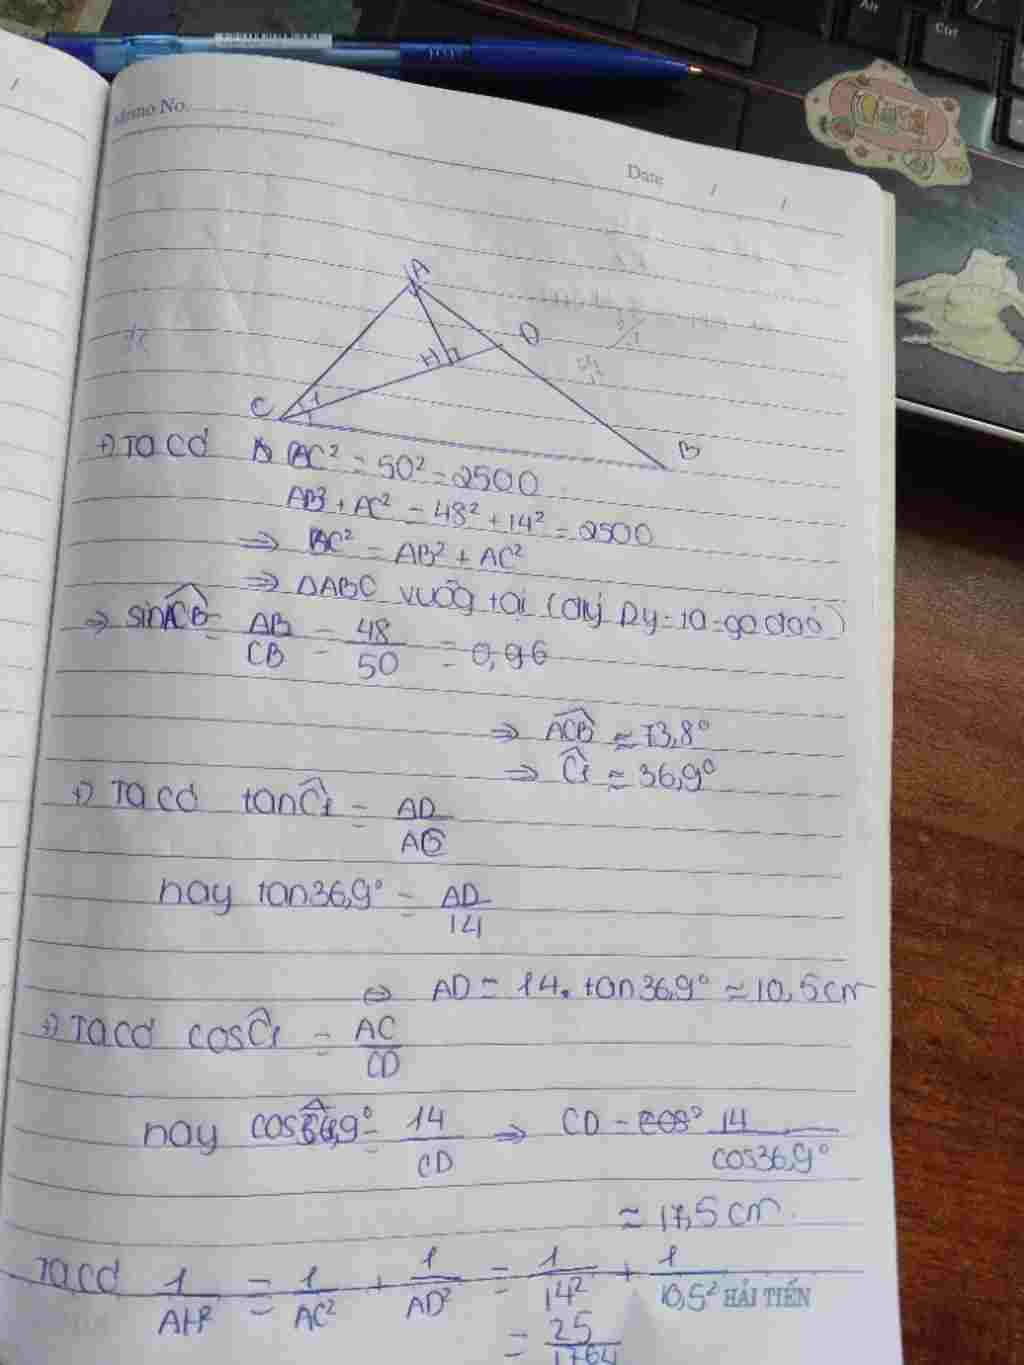 Memo No.
Date / /
Alt
Ctrl
A
D
H
C 1
B
+) Ta có BC² = 50² = 2500
AB² + AC² = 48² + 14² = 2500
⇒ BC² = AB² + AC²
⇒ ΔABC vuông tại (đlý Py-ta-go đảo)
⇒ sin ACB = AB/CB = 48/50 = 0,96
⇒ ACB ≈ 73,8°
⇒ C1 ≈ 36,9°
+) Ta có tan C1 = AD/AC
hay tan36,9° = AD/14
⇔ AD = 14. tan36,9° ≈ 10,5cm
+) Ta có cos C1 = AC/CD
hay cos36,9° = 14/CD ⇒ CD = 14/cos36,9°
≈ 17,5cm.
Ta có 1/AH² = 1/AC² + 1/AD² = 1/14² + 1/10,5²
HẢI TIẾN
= 25/1764